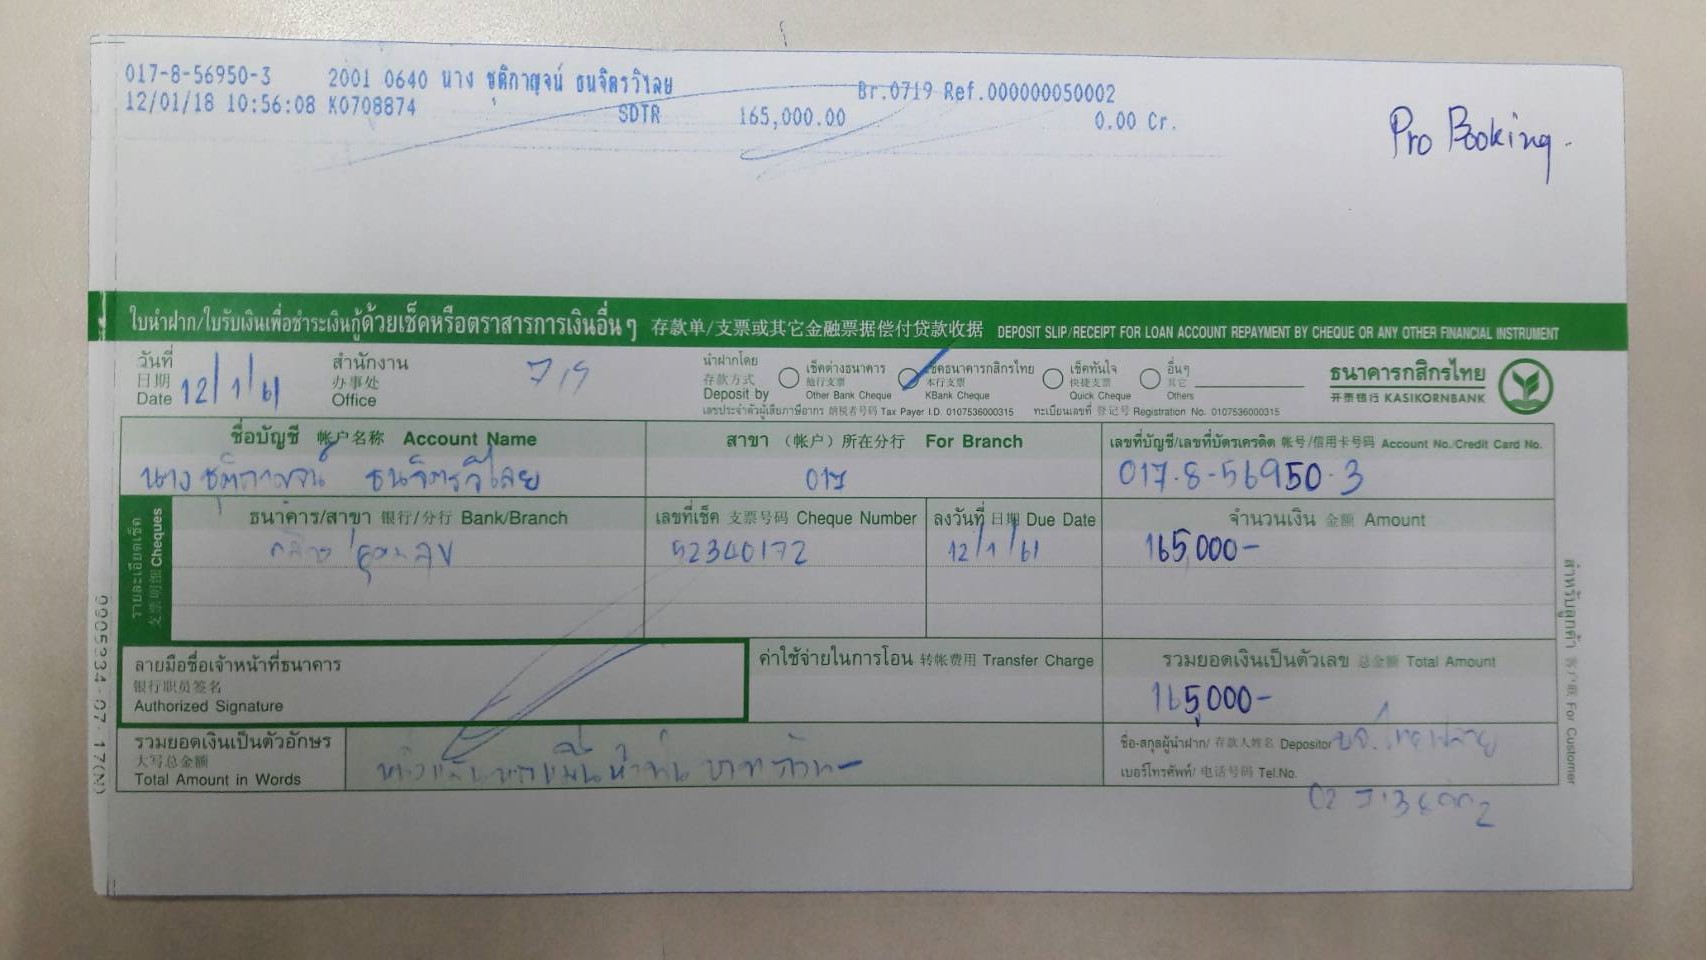 017-8-56950-3 2001 0640 นาง ชุติกาญจน์ ธนจิตรวิไลย Br.0719 Ref.000000050002
12/01/18 10:56:08 K0708874 SDTR 165,000.00 0.00 Cr.
Pro Booking.
ใบนำฝาก/ใบรับเงินเพื่อชำระเงินกู้ด้วยเช็คหรือตราสารการเงินอื่นๆ 存款单/支票或其它金融票据偿付贷款收据 DEPOSIT SLIP/RECEIPT FOR LOAN ACCOUNT REPAYMENT BY CHEQUE OR ANY OTHER FINANCIAL INSTRUMENT
วันที่ 日期 Date 12/1/61
สำนักงาน 办事处 Office 719
นำฝากโดย 存款方式 Deposit by
เช็คต่างธนาคาร 他行支票 Other Bank Cheque
เช็คธนาคารกสิกรไทย 本行支票 KBank Cheque
เช็คทันใจ 快捷支票 Quick Cheque
อื่นๆ 其它 Others
เลขประจำตัวผู้เสียภาษีอากร 纳税者号码 Tax Payer I.D. 0107536000315 ทะเบียนเลขที่ 登记号 Registration No. 0107536000315
ธนาคารกสิกรไทย
开泰银行 KASIKORNBANK
ชื่อบัญชี 帐户名称 Account Name
สาขา (帐户) 所在分行 For Branch
เลขที่บัญชี/เลขที่บัตรเครดิต 帐号/信用卡号码 Account No./Credit Card No.
นาง ชุติกาญจน์ ธนจิตรวิไลย
017
017-8-56950-3
รายละเอียดเช็ค 支票明细 Cheques
ธนาคาร/สาขา 银行/分行 Bank/Branch
เลขที่เช็ค 支票号码 Cheque Number
ลงวันที่ 日期 Due Date
จำนวนเงิน 金额 Amount
52340172
12/1/61
165,000-
ลายมือชื่อเจ้าหน้าที่ธนาคาร
银行职员签名
Authorized Signature
ค่าใช้จ่ายในการโอน 转帐费用 Transfer Charge
รวมยอดเงินเป็นตัวเลข 总金额 Total Amount
165,000-
รวมยอดเงินเป็นตัวอักษร
大写总金额
Total Amount in Words
หนึ่งแสนหกหมื่นห้าพันบาทถ้วน-
ชื่อ-สกุลผู้นำฝาก/ 存款人姓名 Depositor
เบอร์โทรศัพท์/ 电话号码 Tel.No.
สำหรับลูกค้า 客户联 For Customer